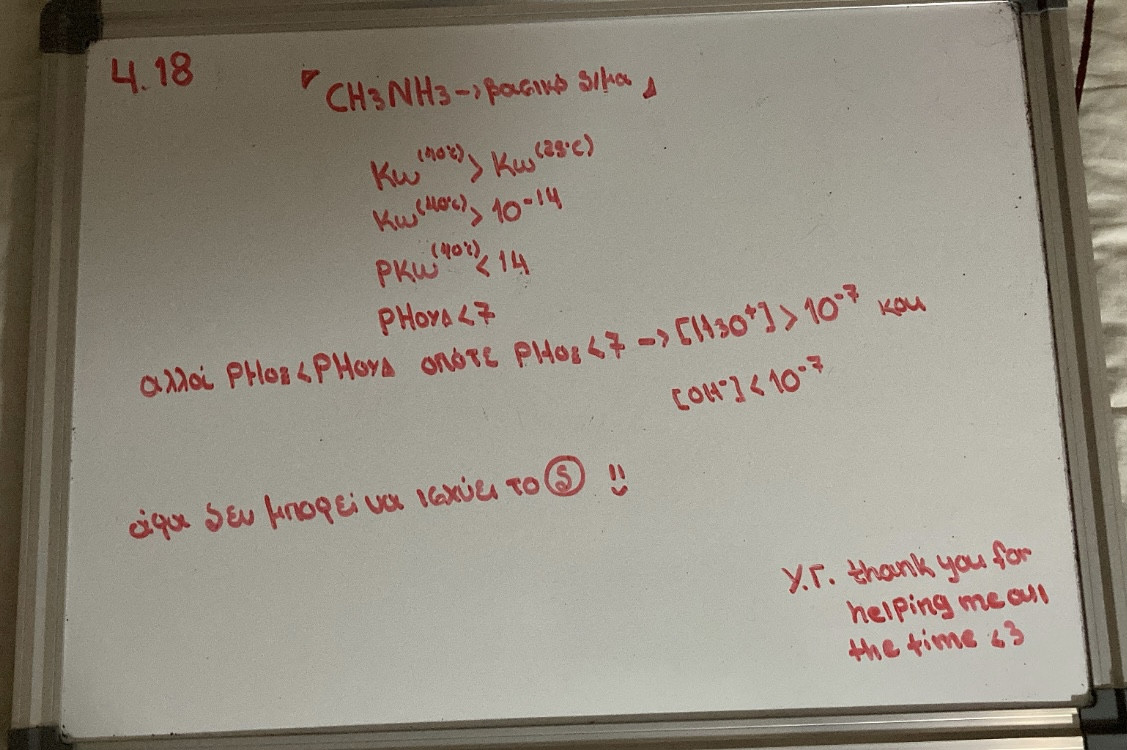 4.18
「CH3NH3 -> βασικό δ/μα」
Kω(40°C) > Kω(25°C)
Kω(40°C) > 10-14
PKω(40°C) < 14
PHουδ < 7
αλλά PHοξ < PHουδ οπότε PHοξ < 7 -> [H3O+] > 10-7 και
[OH-] < 10-7
άρα δεν μπορεί να ισχύει το δ !!
Υ.Γ. thank you for
helping me all
the time <3